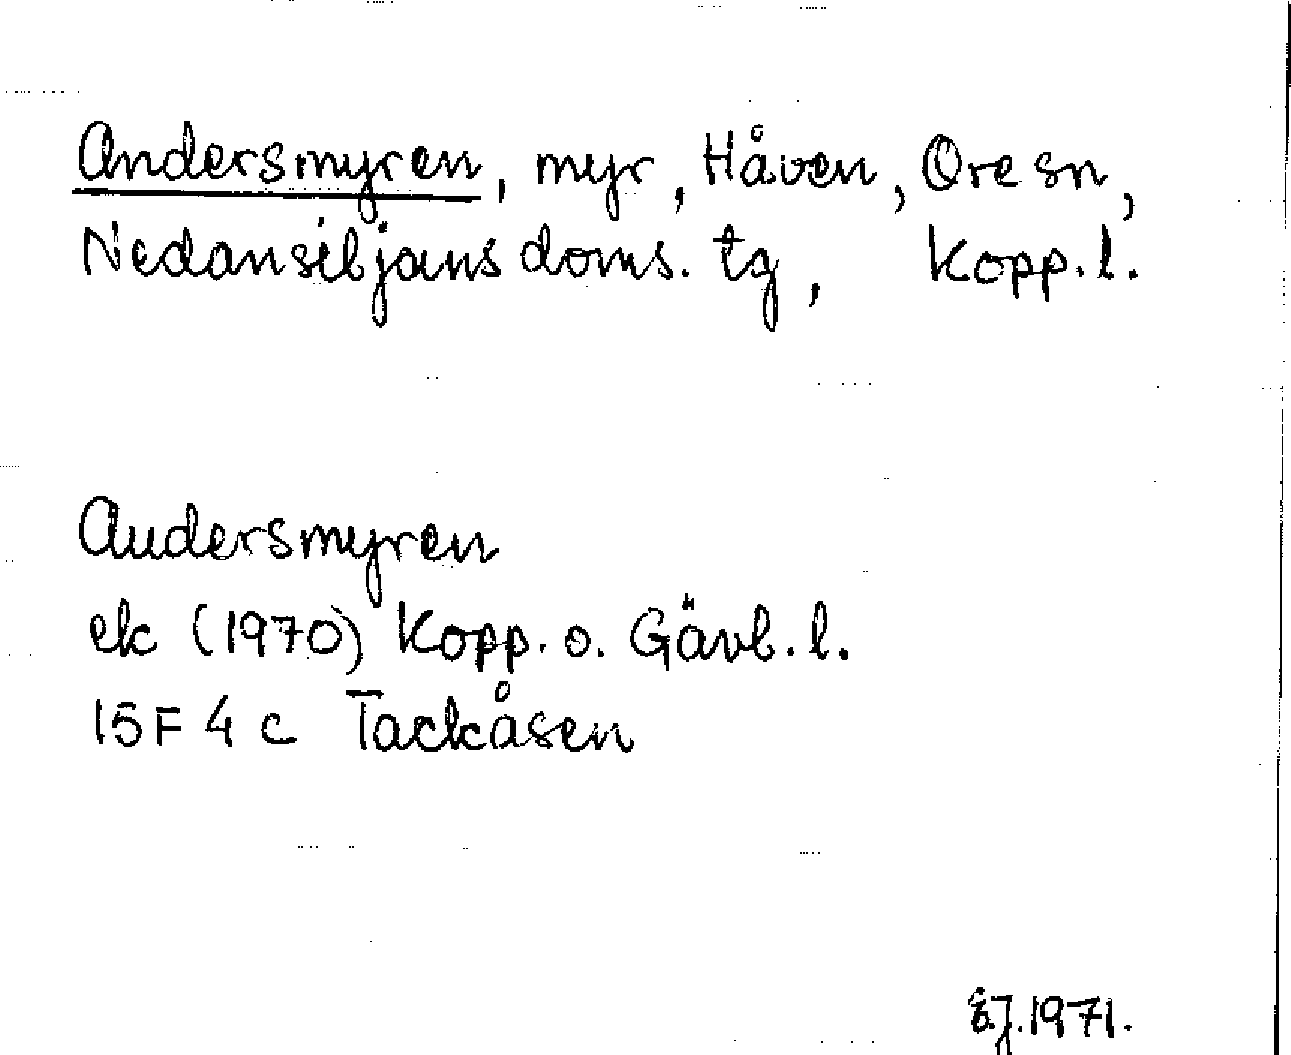 Andersmyren, myr, Håven, Ore sn,
Nedansiljans doms. tg, Kopp. l.
Andersmyren
ek (1970) Kopp. o. Gävb. l.
15F 4 c Tackåsen
1971.